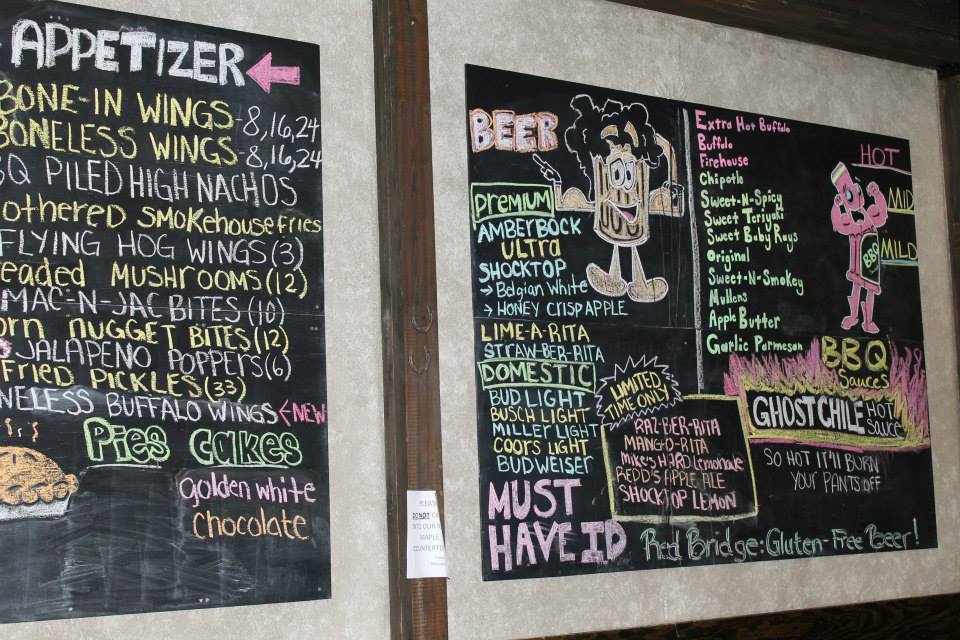 APPETIZER
BONE-IN WINGS-8,16,24
BONELESS WINGS-8,16,24
BQ PILED HIGH NACHOS
othered smokehouse fries
FLYING HOG WINGS (3)
eaded MUSHROOMS (12)
MAC-N-JAC BITES (10)
orn nugget BITES (12)
JALAPENO POPPERS (6)
Fried PICKLES (33)
NELESS BUFFALO WINGS NEW
Pies Cakes
Golden white
chocolate
PLEASE
DO NOT
INTO OUR
MAPLE
COUNTERTO
BEER
PREMIUM
AMBERBOCK
ULTRA
SHOCKTOP
→ Belgian White
→ HONEY CRISP APPLE
LIME-A-RITA
STRAW-BER-RITA
DOMESTIC
BUD LIGHT
BUSCH LIGHT
MILLER LIGHT
COORS LIGHT
BUDWEISER
MUST
HAVE ID
LIMITED
TIME ONLY
RAZ-BER-RITA
MANG-O-RITA
Mike's HARD Lemonade
REDD'S APPLE ALE
SHOCKTOP LEMON
Red Bridge: Gluten-Free Beer!
Extra Hot Buffalo
Buffalo
Firehouse
Chipotle
Sweet-N-Spicy
Sweet Teriyaki
Sweet Baby Rays
Original
Sweet-N-Smokey
Mullens
Apple Butter
Garlic Parmesan
HOT
MID
MILD
BBQ
BBQ
Sauces
GHOST CHILE HOT
Sauce
SO HOT IT'LL BURN
YOUR PANTS OFF